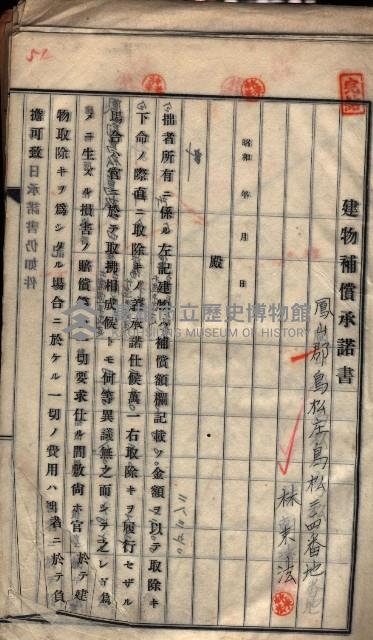 建物補償承諾書
鳳山郡鳥松庄鳥松三四番地
林東法
昭和 年 月 日
殿
拙者所有ニ係ル左記建物ハ補償額欄記載ノ金額ヲ以テ取除キ
下命ノ際直ニ取除キノ義承諾仕候萬一右取除キヲ履行セザル
場合官ニ於テ取拂相成候トモ何等異議無之而シテ之レガ爲
メニ生ズル損害ノ賠償等一切要求仕ル間敷尚ホ官ニ於テ建
物取除キヲ爲シタル場合ニ於ケル一切ノ費用ハ拙者ニ於テ負
擔可致日承諾書仍如件
立歷史博物館
MUSEUM OF HISTORY